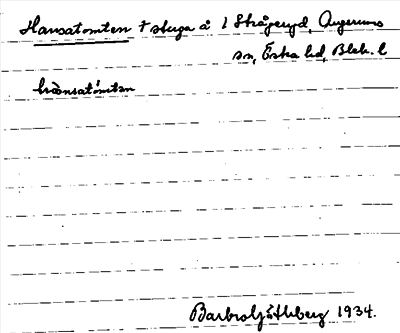 Hansatomten † stuga å 1 Strågeryd, Augerums
sn, Östra hd, Blek. l
hànsatómtan
Barbro Göthberg 1934.